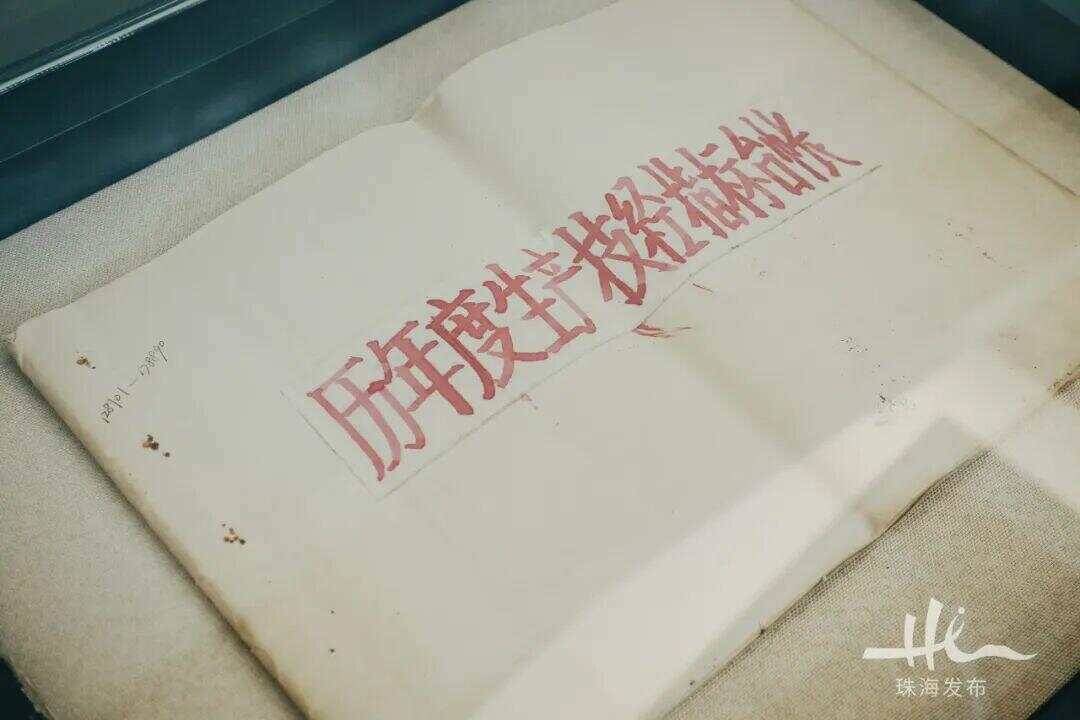 历年度生产技经指标台帐
Hi
珠海发布